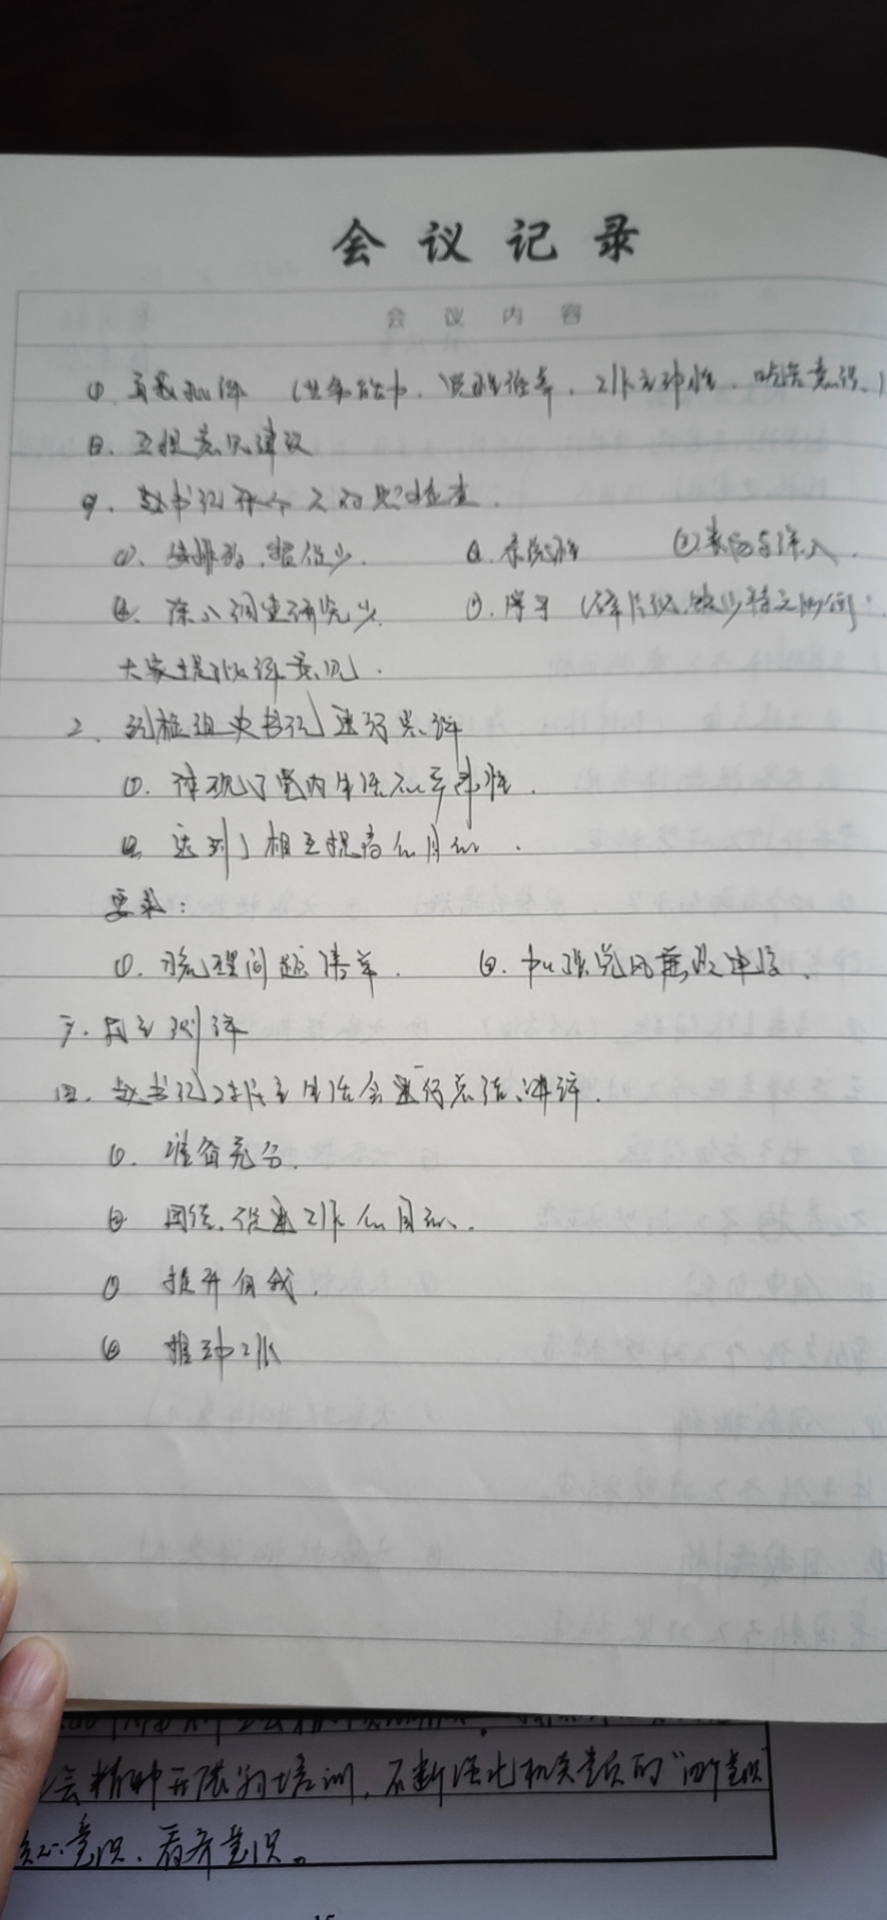 会议记录
会议内容
①. 自我批评 (业务能力、党性修养、工作主动性、吃苦意识、)
②. 互提意见建议
9. 赵书记开个人的对照检查.
①. 安排的、落位少. ②. 系统性 ③表面与深入.
④. 深入调查研究少. ⑤. 学习 (碎片化、缺少
大家提批评意见.
2. 纪检组史书记进行点评
①. 体现了党内生活的严肃性.
②. 达到了相互提高的目的.
要求:
①. 梳理问题清单. ②. 加强党风廉政建设.
三. 民主测评
四. 赵书记对民主生活会进行总结讲评.
①. 准备充分.
② 团结、促进工作的目的.
③ 提升自我.
④ 推动工作
会精神开展的培训，不断强化机关党员的“四个意识
核心意识、看齐意识。
15